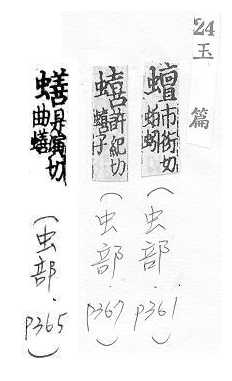 24
玉篇
蟺市衍切蛐蟺
(虫部.p361.)
蟢許紀切蟢子
(虫部.p367.)
蟮丑演切曲蟮
(虫部.p365)